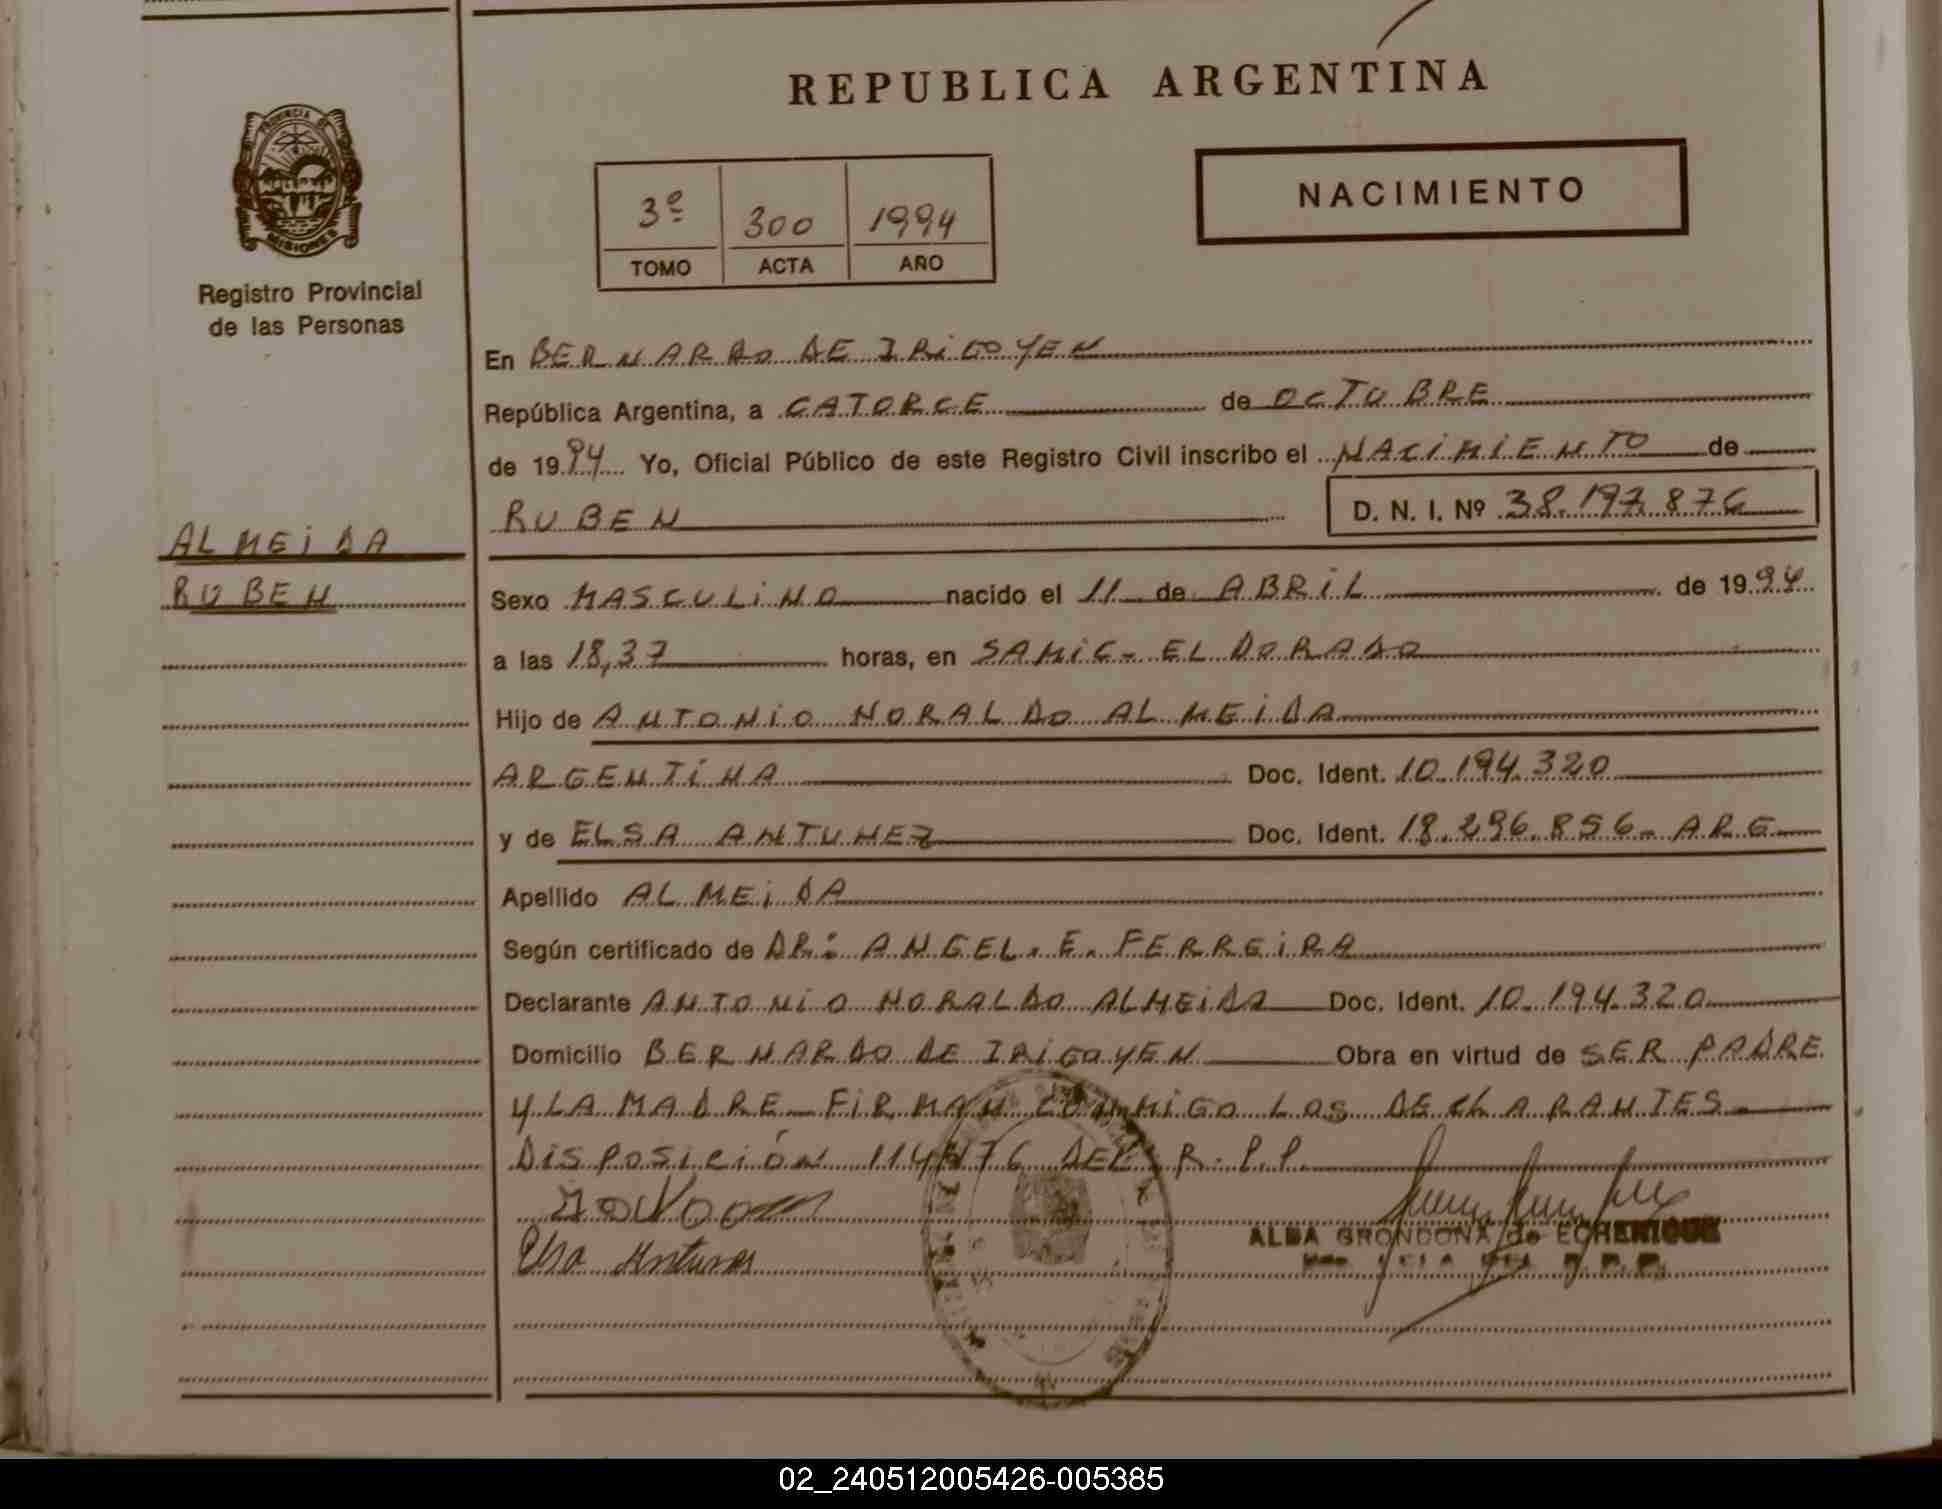 REPUBLICA ARGENTINA
PROVINCIA DE
MISIONES
Registro Provincial
de las Personas
3º 300 1994
TOMO ACTA AÑO
NACIMIENTO
En BERNARDO DE IRIGOYEN
República Argentina, a CATORCE de OCTUBRE
de 1994 Yo, Oficial Público de este Registro Civil inscribo el NACIMIENTO de
RUBEN D. N. I. Nº 38.197.876
ALMEIDA
RUBEN
Sexo MASCULINO nacido el 11 de ABRIL de 1994
a las 18,37 horas, en SAMIC - EL DORADO
Hijo de ANTONIO NORALDO ALMEIDA
ARGENTINA Doc. Ident. 10.194.320
y de ELSA ANTUNEZ Doc. Ident. 18.296.856 - ARG
Apellido ALMEIDA
Según certificado de DR: ANGEL. E. FERREIRA
Declarante ANTONIO NORALDO ALMEIDA Doc. Ident. 10.194.320
Domicilio BERNARDO DE IRIGOYEN Obra en virtud de SER PADRE
Y LA MADRE - FIRMAN CONMIGO LOS DECLARANTES
DISPOSICIÓN 114/76 DEL R.P.P.
Elsa Antunes
ALBA GRONDONA de ECHENIQUE
02_240512005426-005385